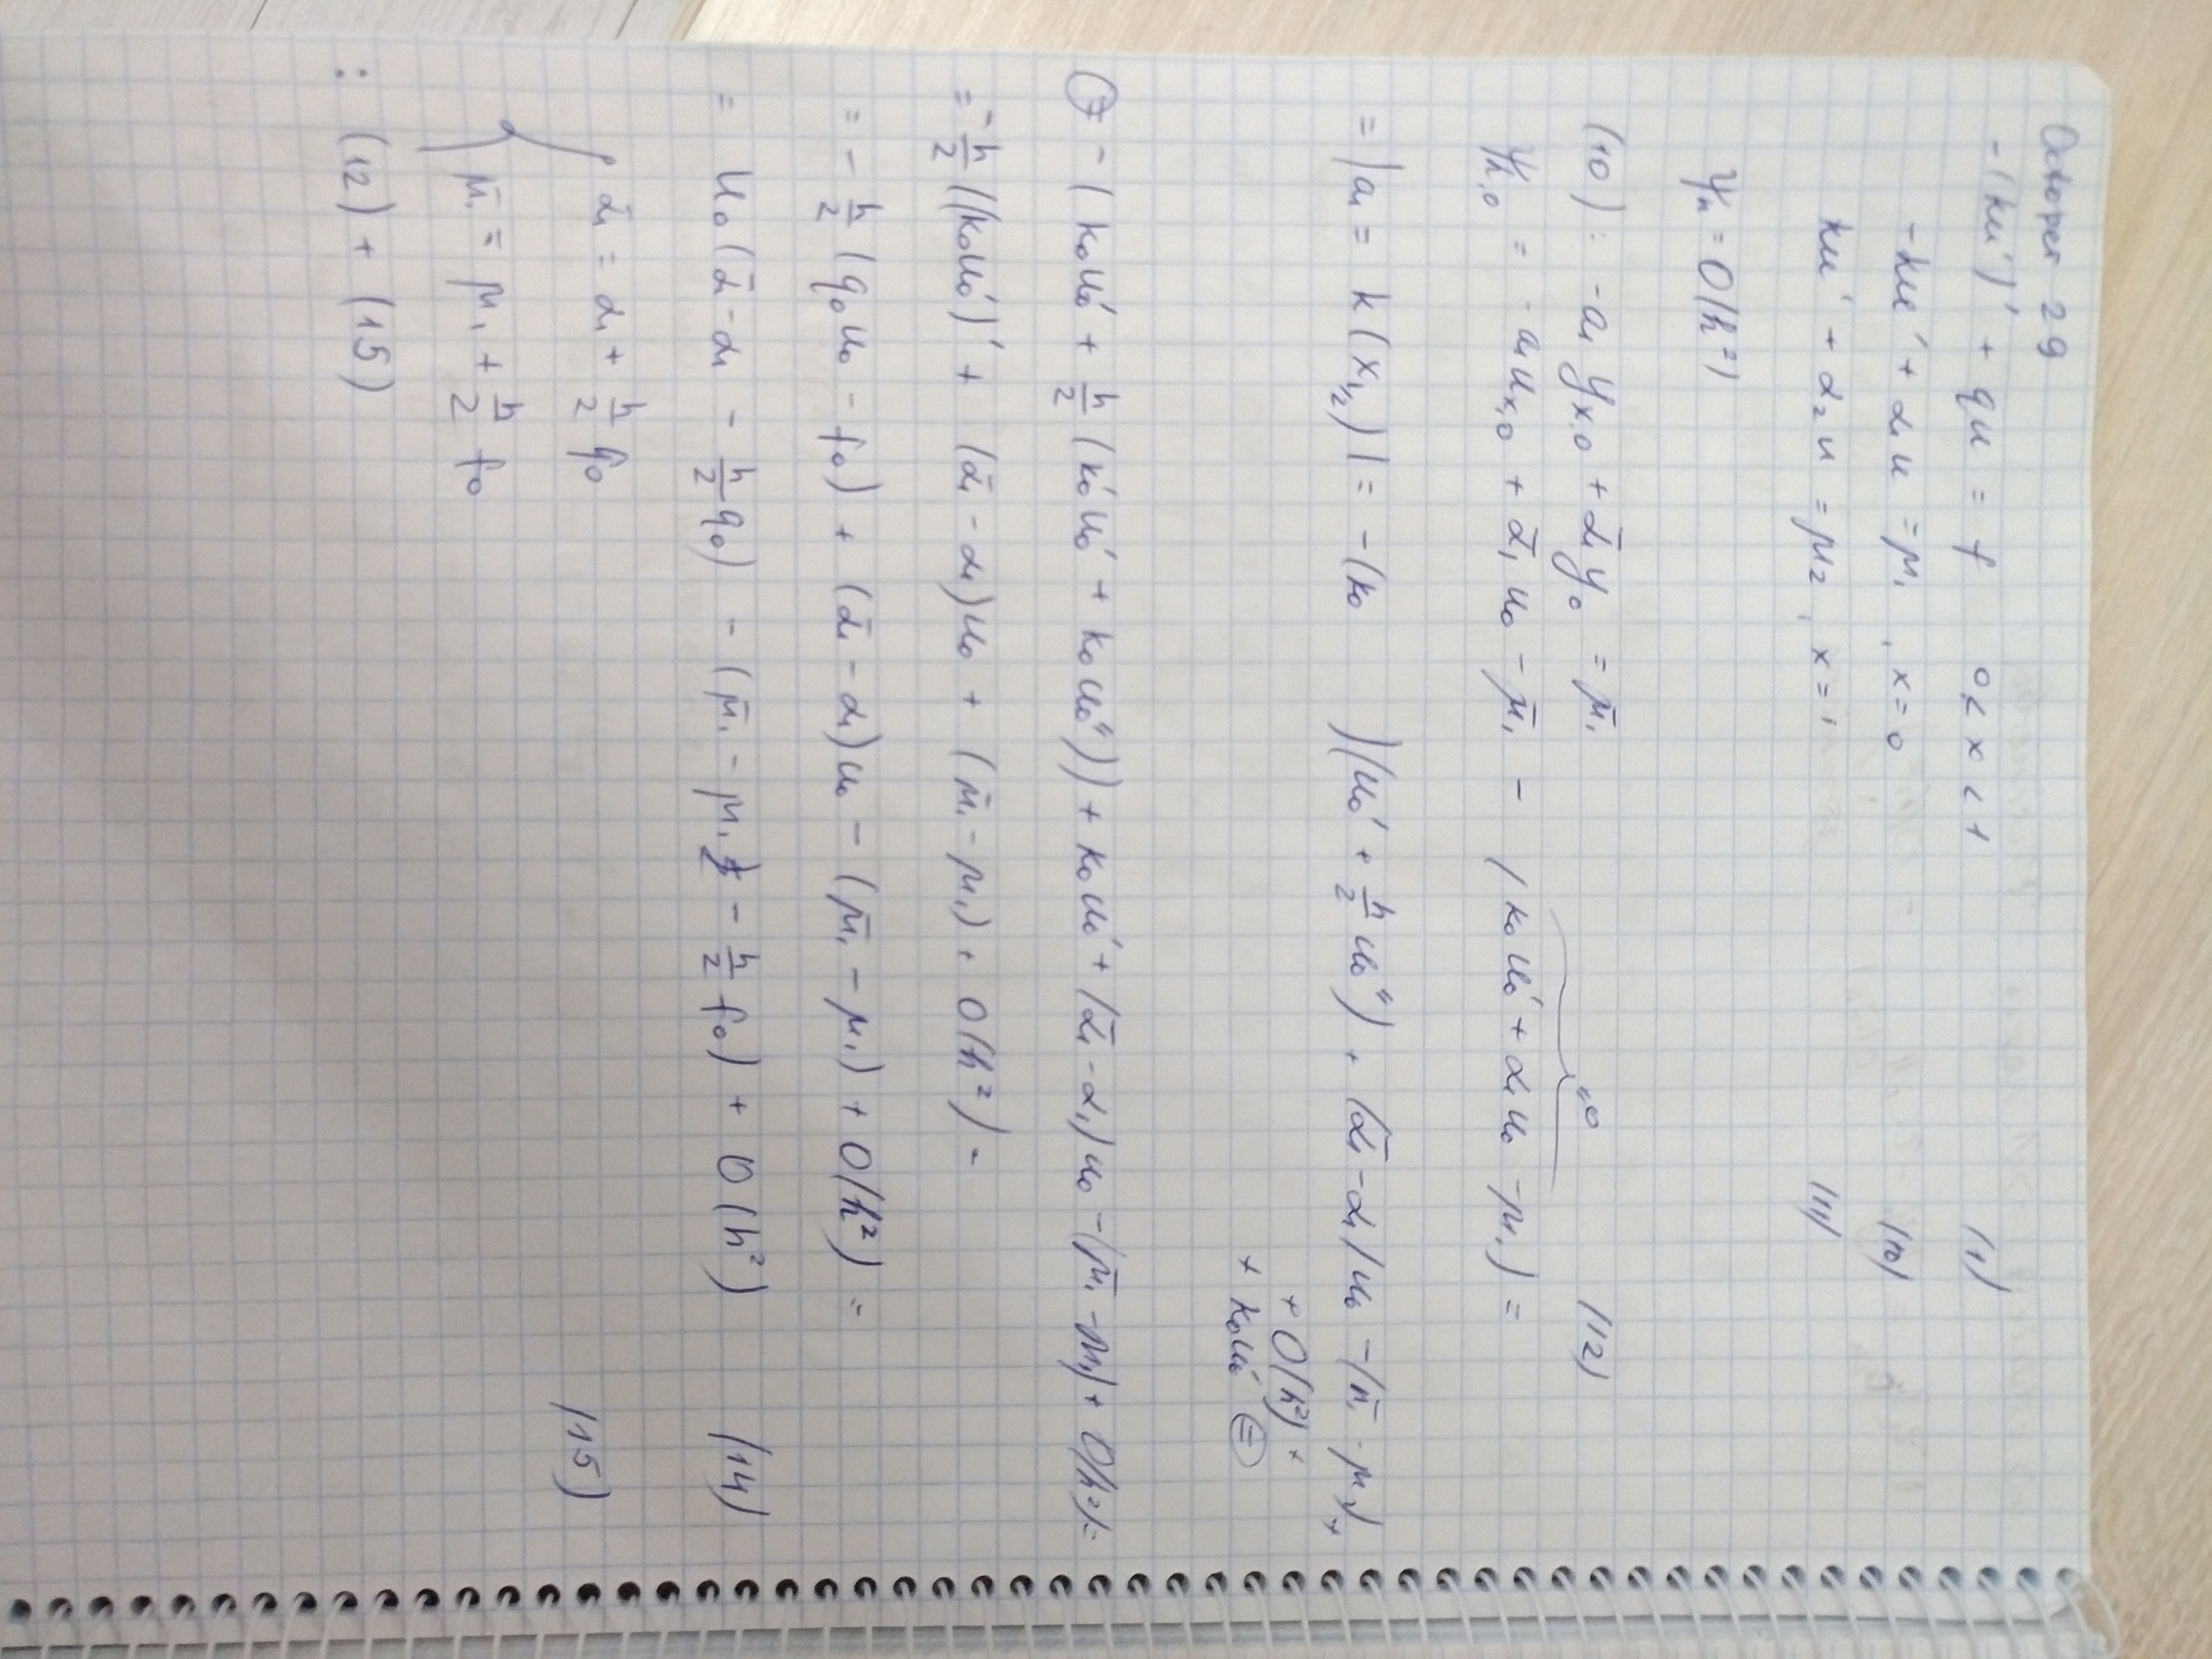 October 29
-(ku')' + qu = f 0 < x < 1 (1)
-ku' + α₁u = μ₁, x = 0 (10)
ku' + α₂u = μ₂, x = 1 (11)
ψₕ = O(h²)
(10): -a₁yₓ,₀ + ᾱ₁y₀ = μ̄₁ (12)
ψₕ,₀ = -a₁uₓ,₀ + ᾱ₁u₀ - μ̄₁ - (-k₀u₀' + α₁u₀ - μ₁) =
"0
= |a₁ = k(x₁/₂)| = -(k₀ )(u₀' + h/2 u₀'') + (ᾱ₁ - α₁)u₀ - (μ̄₁ - μ₁) +
+ O(h²) +
+ k₀u₀' ⊜
⊜ -(k₀u₀' + h/2 (k₀'u₀' + k₀u₀'')) + k₀u₀' + (ᾱ₁ - α₁)u₀ - (μ̄₁ - μ₁) + O(h²) =
= -h/2 ((k₀u₀')' + (ᾱ₁ - α₁)u₀ + (μ̄₁ - μ₁) + O(h²) =
= -h/2 (q₀u₀ - f₀) + (ᾱ₁ - α₁)u₀ - (μ̄₁ - μ₁) + O(h²) =
= u₀(ᾱ₁ - α₁ - h/2 q₀) - (μ̄₁ - μ₁ - h/2 f₀) + O(h²) (14)
{ ᾱ₁ = α₁ + h/2 q₀ (15)
μ̄₁ = μ₁ + h/2 f₀
: (12) + (15)